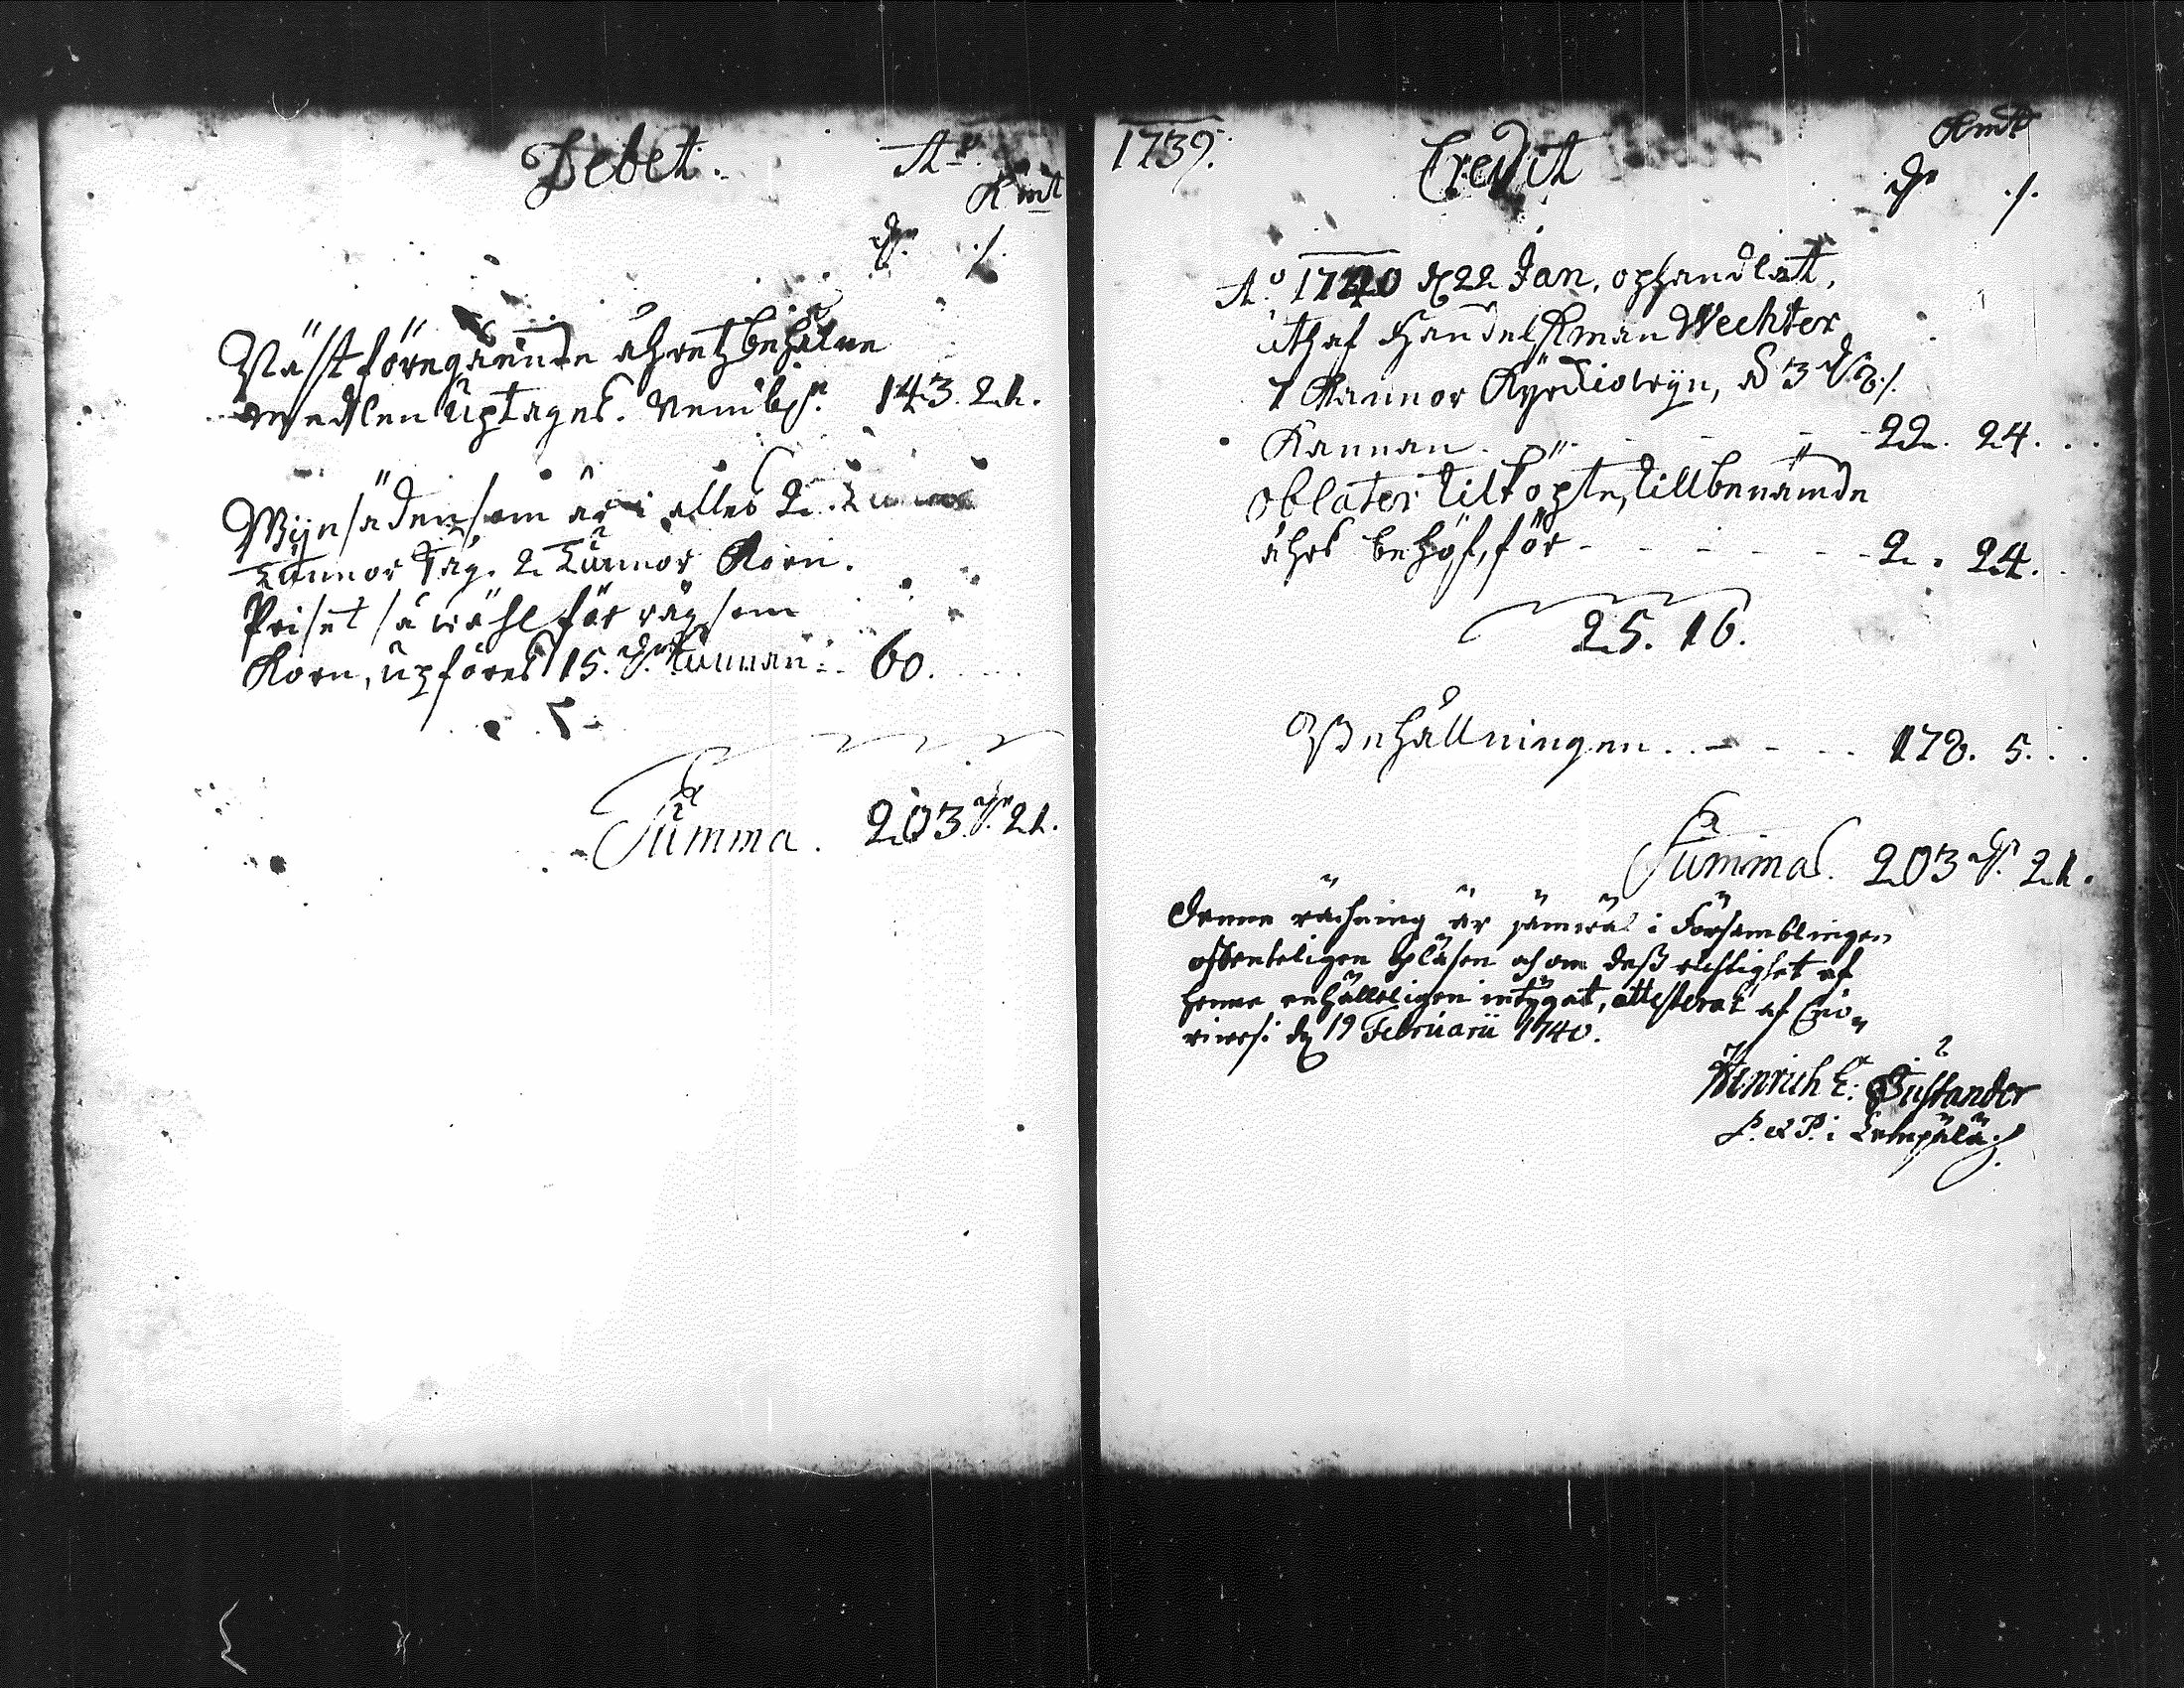 Debet. Aº.
Kmt
dr. ./.
Näst föregående åhretz behålne
medlen uptagne. Nembl. 143. 21.
Wijnsäden som är i alles 2.
Tunnor råg. 2 Tunnor Korn.
Priset så wähl för råg som
Korn, upföres 15. dr. tunnan. 60.
Summa. 203 dr. 21.
1739. Credit Kmt
dr ./.
Aº. 1740 d 22 Jan. ophandlat,
uthaf Handelsman Wechter
7 Kannor Kyrkiowijn, à 3 dr 8 ./.
Kannan. - - - 22. 24.
Oblater tilköpte, till benämde
åhrs behof, för - - - - - 2. 24.
25. 16.
Behållningen. - - - 178. 5.
Summa. 203 dr. 21.
Denne räkning är jämwäl i Församblingen
offenteligen opläsen och om dess richtighet af
henne enhälleligen intygat, attesterat af
d 19 Februarii 1740.
Henrich E:
P. & P. i Lempälä.